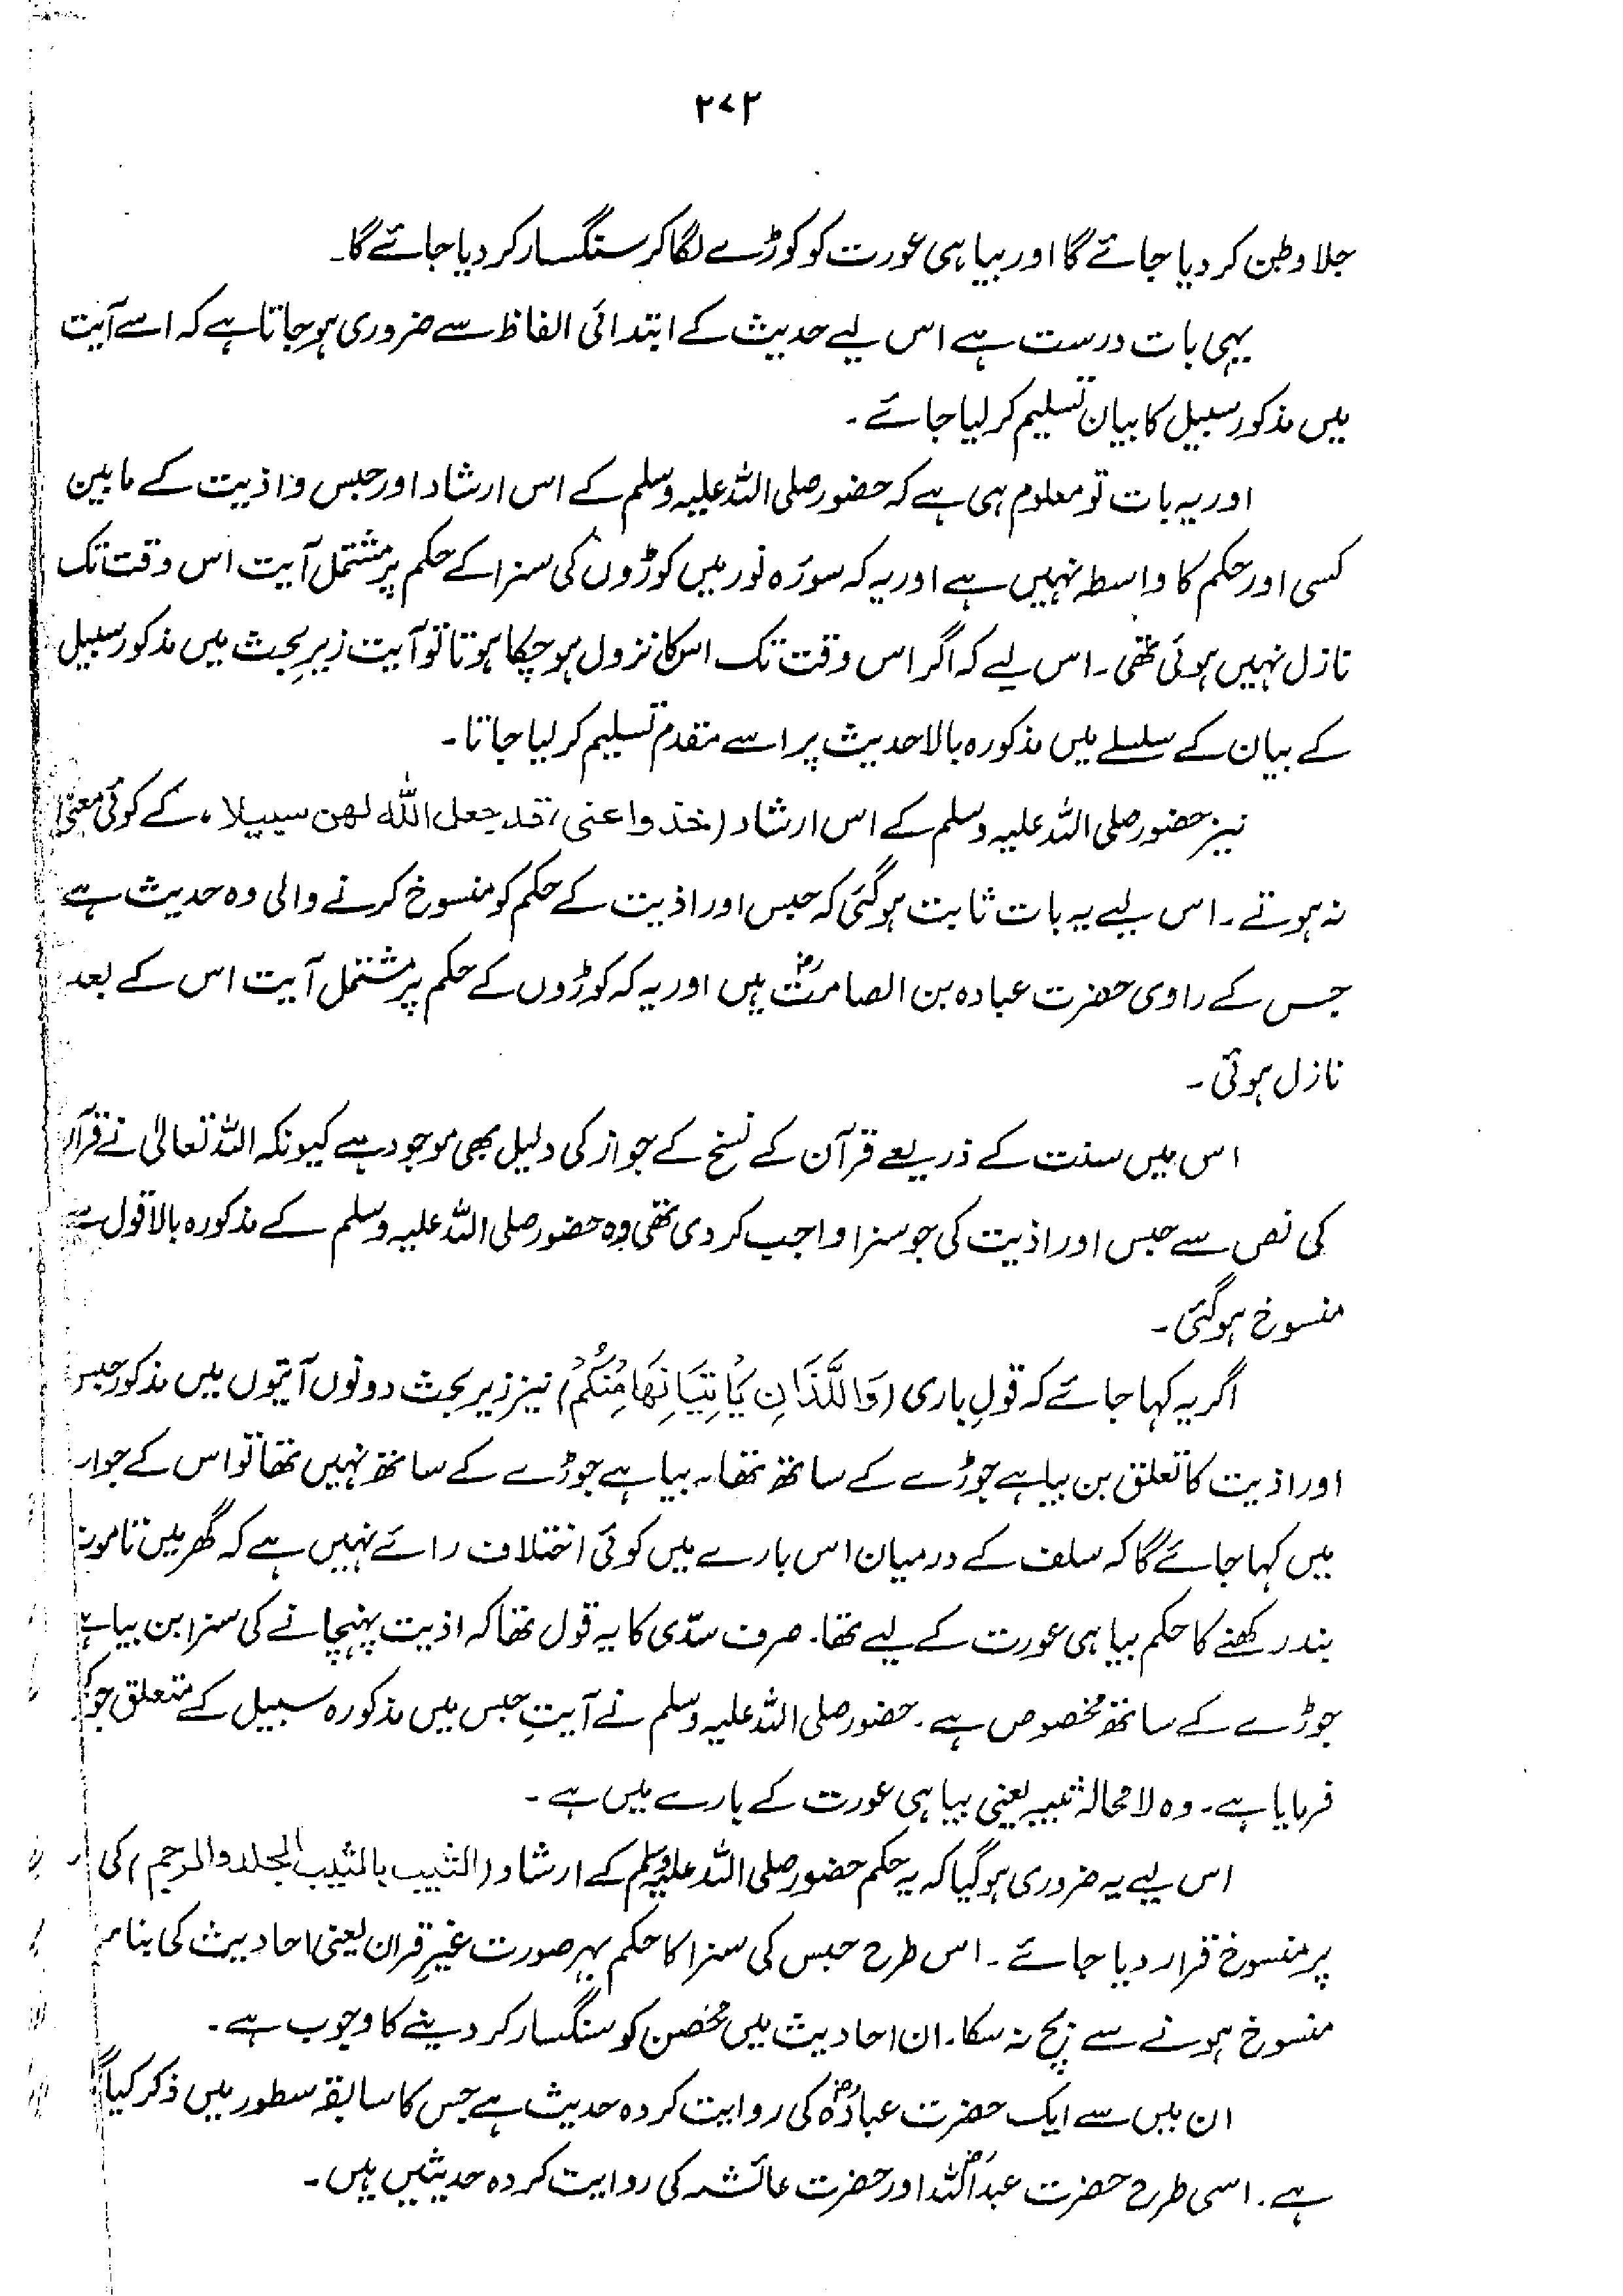 ۲۷۲
جلا وطن کر دیا جائے گا اور بیاہی عورت کو کوڑے لگا کر سنگسار کر دیا جائے گا۔
یہی بات درست ہے اس لیے حدیث کے ابتدائی الفاظ سے ضروری ہو جاتا ہے کہ اسے آیت
میں مذکور سبیل کا بیان تسلیم کر لیا جائے۔
اور یہ بات تو معلوم ہی ہے کہ حضور صلی اللہ علیہ وسلم کے اس ارشاد اور حبس و اذیت کے مابین
کسی اور حکم کا واسطہ نہیں ہے اور یہ کہ سورہ نور میں کوڑوں کی سزا کے حکم پر مشتمل آیت اس وقت تک
نازل نہیں ہوئی تھی۔ اس لیے کہ اگر اس وقت تک اس کا نزول ہو چکا ہوتا تو آیت زیرِ بحث میں مذکور سبیل
کے بیان کے سلسلے میں مذکورہ بالا حدیث پر اسے متقدم تسلیم کر لیا جاتا۔
نیز حضور صلی اللہ علیہ وسلم کے اس ارشاد (خذوا عنی، قد جعل اللہ لھن سبیلا، کے کوئی معنی
نہ ہوتے۔ اس لیے یہ بات ثابت ہو گئی کہ حبس اور اذیت کے حکم کو منسوخ کرنے والی وہ حدیث ہے
جس کے راوی حضرت عبادہ بن الصامتؓ ہیں اور یہ کہ کوڑوں کے حکم پر مشتمل آیت اس کے بعد
نازل ہوئی۔
اس میں سنت کے ذریعے قرآن کے نسخ کے جواز کی دلیل بھی موجود ہے کیونکہ اللہ تعالیٰ نے قرآن
کی نص سے حبس اور اذیت کی جو سزا واجب کر دی تھی وہ حضور صلی اللہ علیہ وسلم کے مذکورہ بالا قول سے
منسوخ ہو گئی۔
اگر یہ کہا جائے کہ قولِ باری (وَاللَّذَانِ یَأْتِیَانِهَا مِنْكُمْ) نیز زیر بحث دونوں آیتوں میں مذکور حبس
اور اذیت کا تعلق بن بیاہے جوڑے کے ساتھ تھا۔ بیاہے جوڑے کے ساتھ نہیں تھا تو اس کے جواب
میں کہا جائے گا کہ سلف کے درمیان اس بارے میں کوئی اختلاف رائے نہیں ہے کہ گھر میں تاموت
بند رکھنے کا حکم بیاہی عورت کے لیے تھا۔ صرف سدّی کا یہ قول تھا کہ اذیت پہنچانے کی سزا بن بیاہے
جوڑے کے ساتھ مخصوص ہے۔ حضور صلی اللہ علیہ وسلم نے آیتِ حبس میں مذکورہ سبیل کے متعلق جو
فرمایا ہے۔ وہ لا محالہ ثیبہ یعنی بیاہی عورت کے بارے میں ہے۔
اس لیے یہ ضروری ہو گیا کہ یہ حکم حضور صلی اللہ علیہ وسلم کے ارشاد (الثیب بالثیب الجلد والرجم) کی
پر منسوخ قرار دیا جائے۔ اس طرح حبس کی سزا کا حکم بہر صورت غیرِ قرآن یعنی احادیث کی بنا پر
منسوخ ہونے سے بچ نہ سکا۔ ان احادیث میں محصن کو سنگسار کر دینے کا وجوب ہے۔
ان میں سے ایک حضرت عبادہؓ کی روایت کردہ حدیث ہے جس کا سابقہ سطور میں ذکر کیا گیا
ہے۔ اسی طرح حضرت عبداللہؓ اور حضرت عائشہ کی روایت کردہ حدیثیں ہیں۔